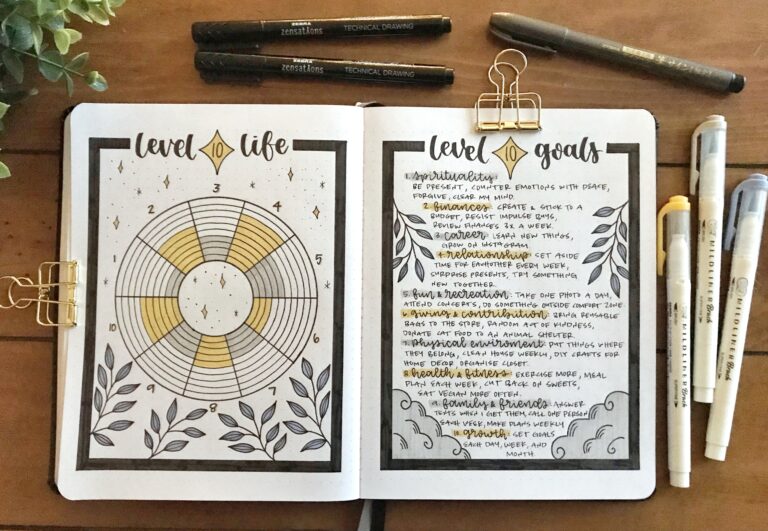 ZEBRA zensations TECHNICAL DRAWING
ZEBRA zensations TECHNICAL DRAWING
level 10 life
1
2
3
4
5
7
8
9
10
level 10 goals
1. spirituality:
BE PRESENT, COUNTER EMOTIONS WITH PEACE,
FORGIVE, CLEAR MY MIND.
2. finances: CREATE & STICK TO A
BUDGET, RESIST IMPULSE BUYS,
REVIEW FINANCES 3X A WEEK.
3. career: LEARN NEW THINGS,
GROW ON INSTAGRAM.
4. relationship: SET ASIDE
TIME FOR EACHOTHER EVERY WEEK,
SURPRISE PRESENTS, TRY SOMETHING
NEW TOGETHER.
5. fun & recreation: TAKE ONE PHOTO A DAY,
ATTEND CONCERTS, DO SOMETHING OUTSIDE COMFORT ZONE
6. giving & contribution: BRING REUSABLE
BAGS TO THE STORE, RANDOM ART OF KINDNESS,
DONATE CAT FOOD TO AN ANIMAL SHELTER.
7. physical enviroment: PUT THINGS WHERE
THEY BELONG, CLEAN HOUSE WEEKLY, DIY CRAFTS FOR
HOME DECOR, ORGANISE CLOSET.
8. health & fitness: EXERCISE MORE, MEAL
PLAN EACH WEEK, CUT BACK ON SWEETS,
EAT VEGAN MORE OFTEN.
9. family & friends: ANSWER
TEXTS WHEN I GET THEM, CALL ONE PERSON
EACH WEEK, MAKE PLANS WEEKLY
10. growth: SET GOALS
EACH DAY, WEEK, AND
MONTH.
MILDLINER Brush
MILDLINER Brush
MILDLINER Brush